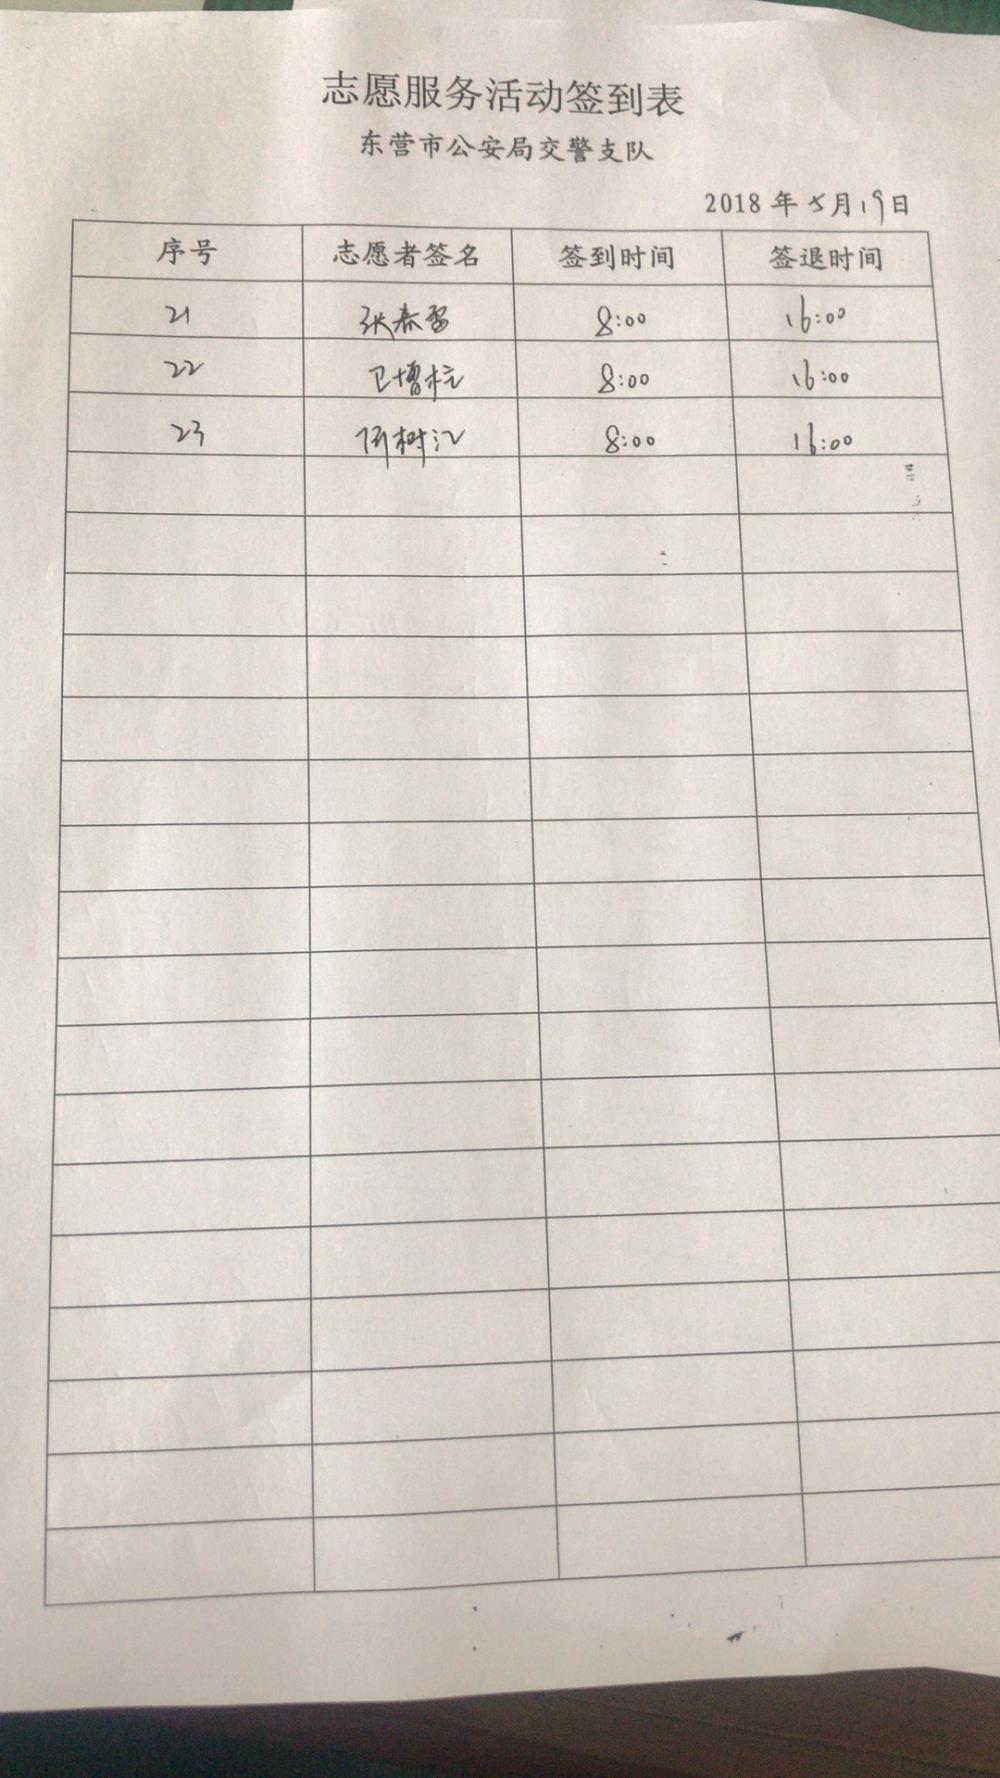 志愿服务活动签到表
东营市公安局交警支队
2018 年 5月19日
序号 志愿者签名 签到时间 签退时间
21 张春雷 8:00 16:00
22 卫增 8:00 16:00
23 树江 8:00 16:00